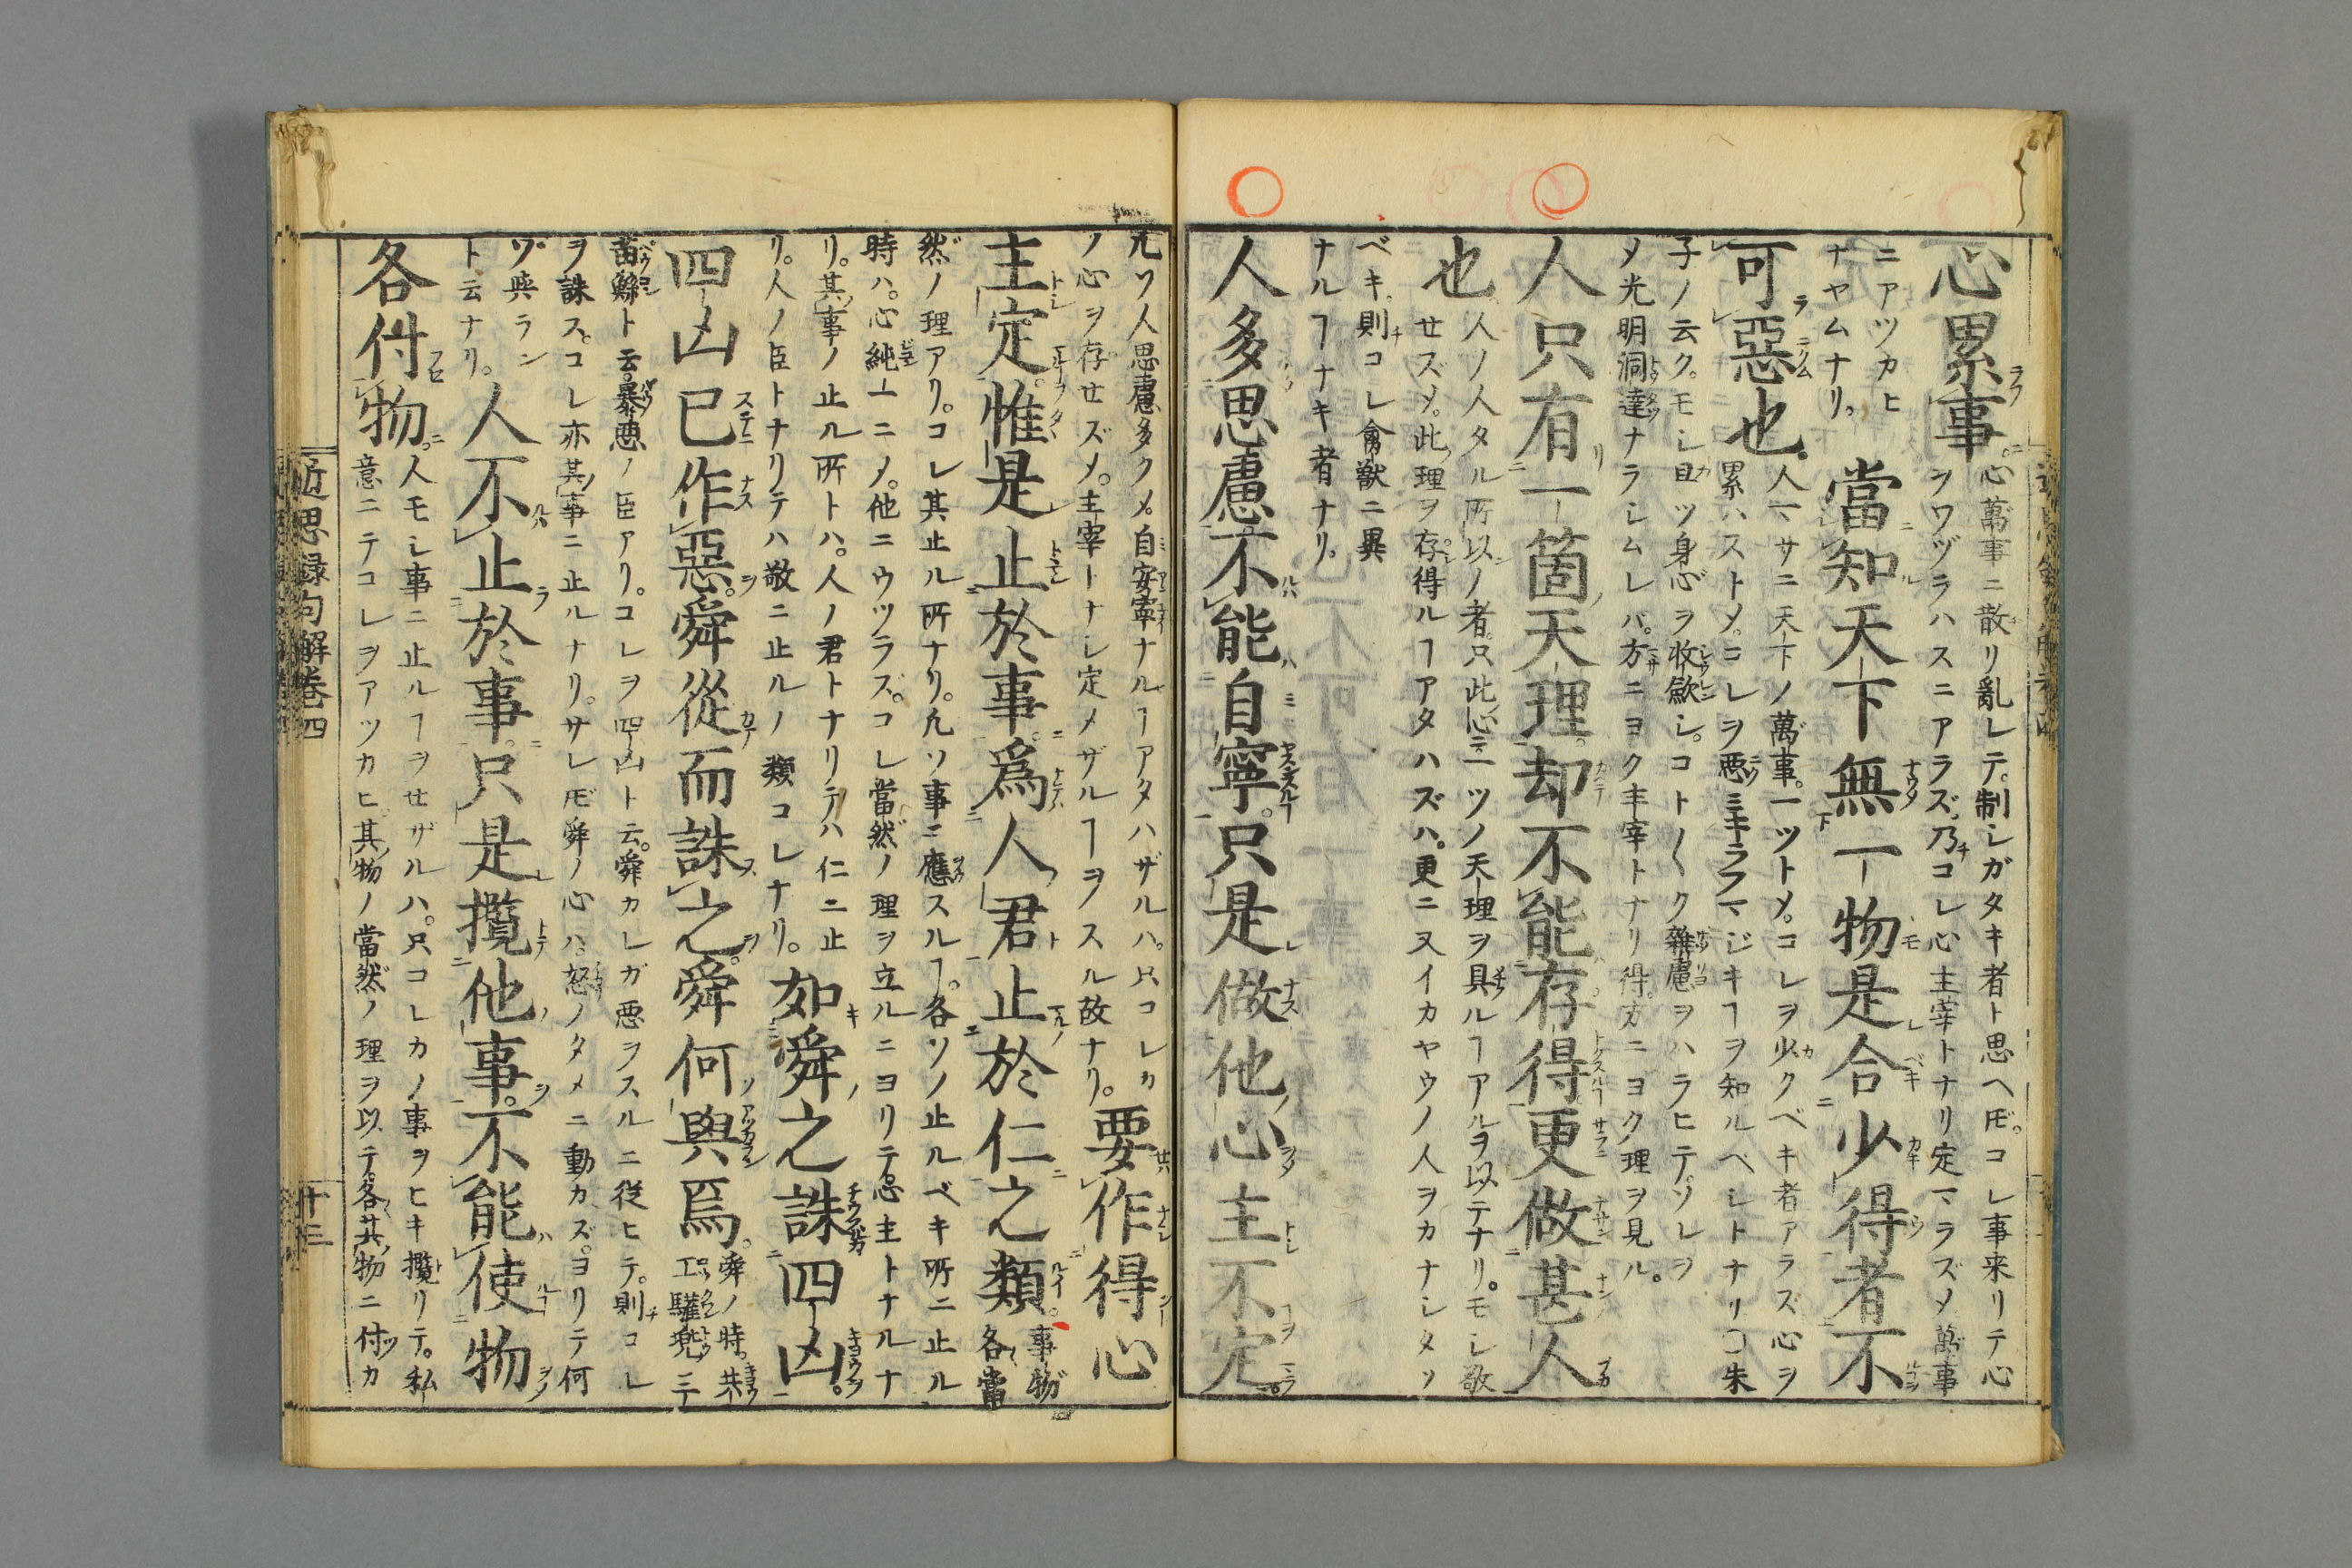 心累事。心萬事ニ散リ亂レテ制シガタキ者ト思ヘ𪜈。コレ事来リテ心
ヲワヅラハスニアラズ。乃コレ心主宰トナリ定マラズメ萬事
ニアツカヒ
ナヤムナリ。
當知天下無一物是合少得者不
可惡也。人マサニ天下ノ萬事。一ツトメ。コレヲ少クベキ者アラズ心ヲ
累ハストメ。コレヲ悪ミキラフマジキヿヲ知ルベシトナリ〇朱
子ノ云ク。モシ且ツ身心ヲ收斂シ。コト〱ク雜慮ヲハラヒテ。ソレヲ
メ光明洞達ナラシムレバ。方ニヨク主宰トナリ得。方ニヨク理ヲ見ル。
人只有一箇天理。却不能存得更做甚人
也人ノ人タル所以ノ者。只此心ニ一ツノ天理ヲ具ルヿアルヲ以テナリ。モシ敬
せズメ。此理ヲ存得ルヿアタハズハ。更ニ又イカヤウノ人ヲカナシタソ
ベキ。則コレ禽獣ニ異
ナルヿナキ者ナリ。
人多思慮不能自寧。只是做他心主不定。
凡ソ人思慮多クメ。自安寧ナルヿアタハザルハ。只コレカ
ノ心ヲ存せズメ。主宰トナシ定メザルヿヲスル故ナリ。
要作得心
主定。惟是止於事。爲人君止於仁之類。事物
各當
然ノ理アリ。コレ其止ル所ナリ。凡ソ事ニ應スルヿ。各ソノ止ルベキ所ニ止ル
時ハ。心純一ニメ。他ニウツラズ。コレ當然ノ理ヲ立ルニヨリテ。心主トナルナ
リ。其事ノ止ル所トハ。人ノ君トナリテハ仁ニ止
リ。人ノ臣トナリテハ敬ニ止ルノ類コレナリ。
如舜之誅四凶。
四凶已作惡。舜從而誅之。舜何與焉。舜ノ時。共
工驩兜三
苗鯀ト云。暴悪ノ臣アリ。コレヲ四凶ト云。舜カレガ悪ヲスルニ従ヒテ。則コレ
ヲ誅ス。コレ亦其事ニ止ルナリ。サレ𪜈舜ノ心ハ。怒ノタメニ動カズ。ヨリテ何
ソ與ラン
ト云ナリ。
人不止於事。只是攬他事。不能使物
各付物。人モシ事ニ止ルヿヲせザルハ。只コレカノ事ヲヒキ攬リテ。私
意ニテコレヲアツカヒ。其物ノ當然ノ理ヲ以テ。各其物ニ付カ
近思録句解巻四
十三